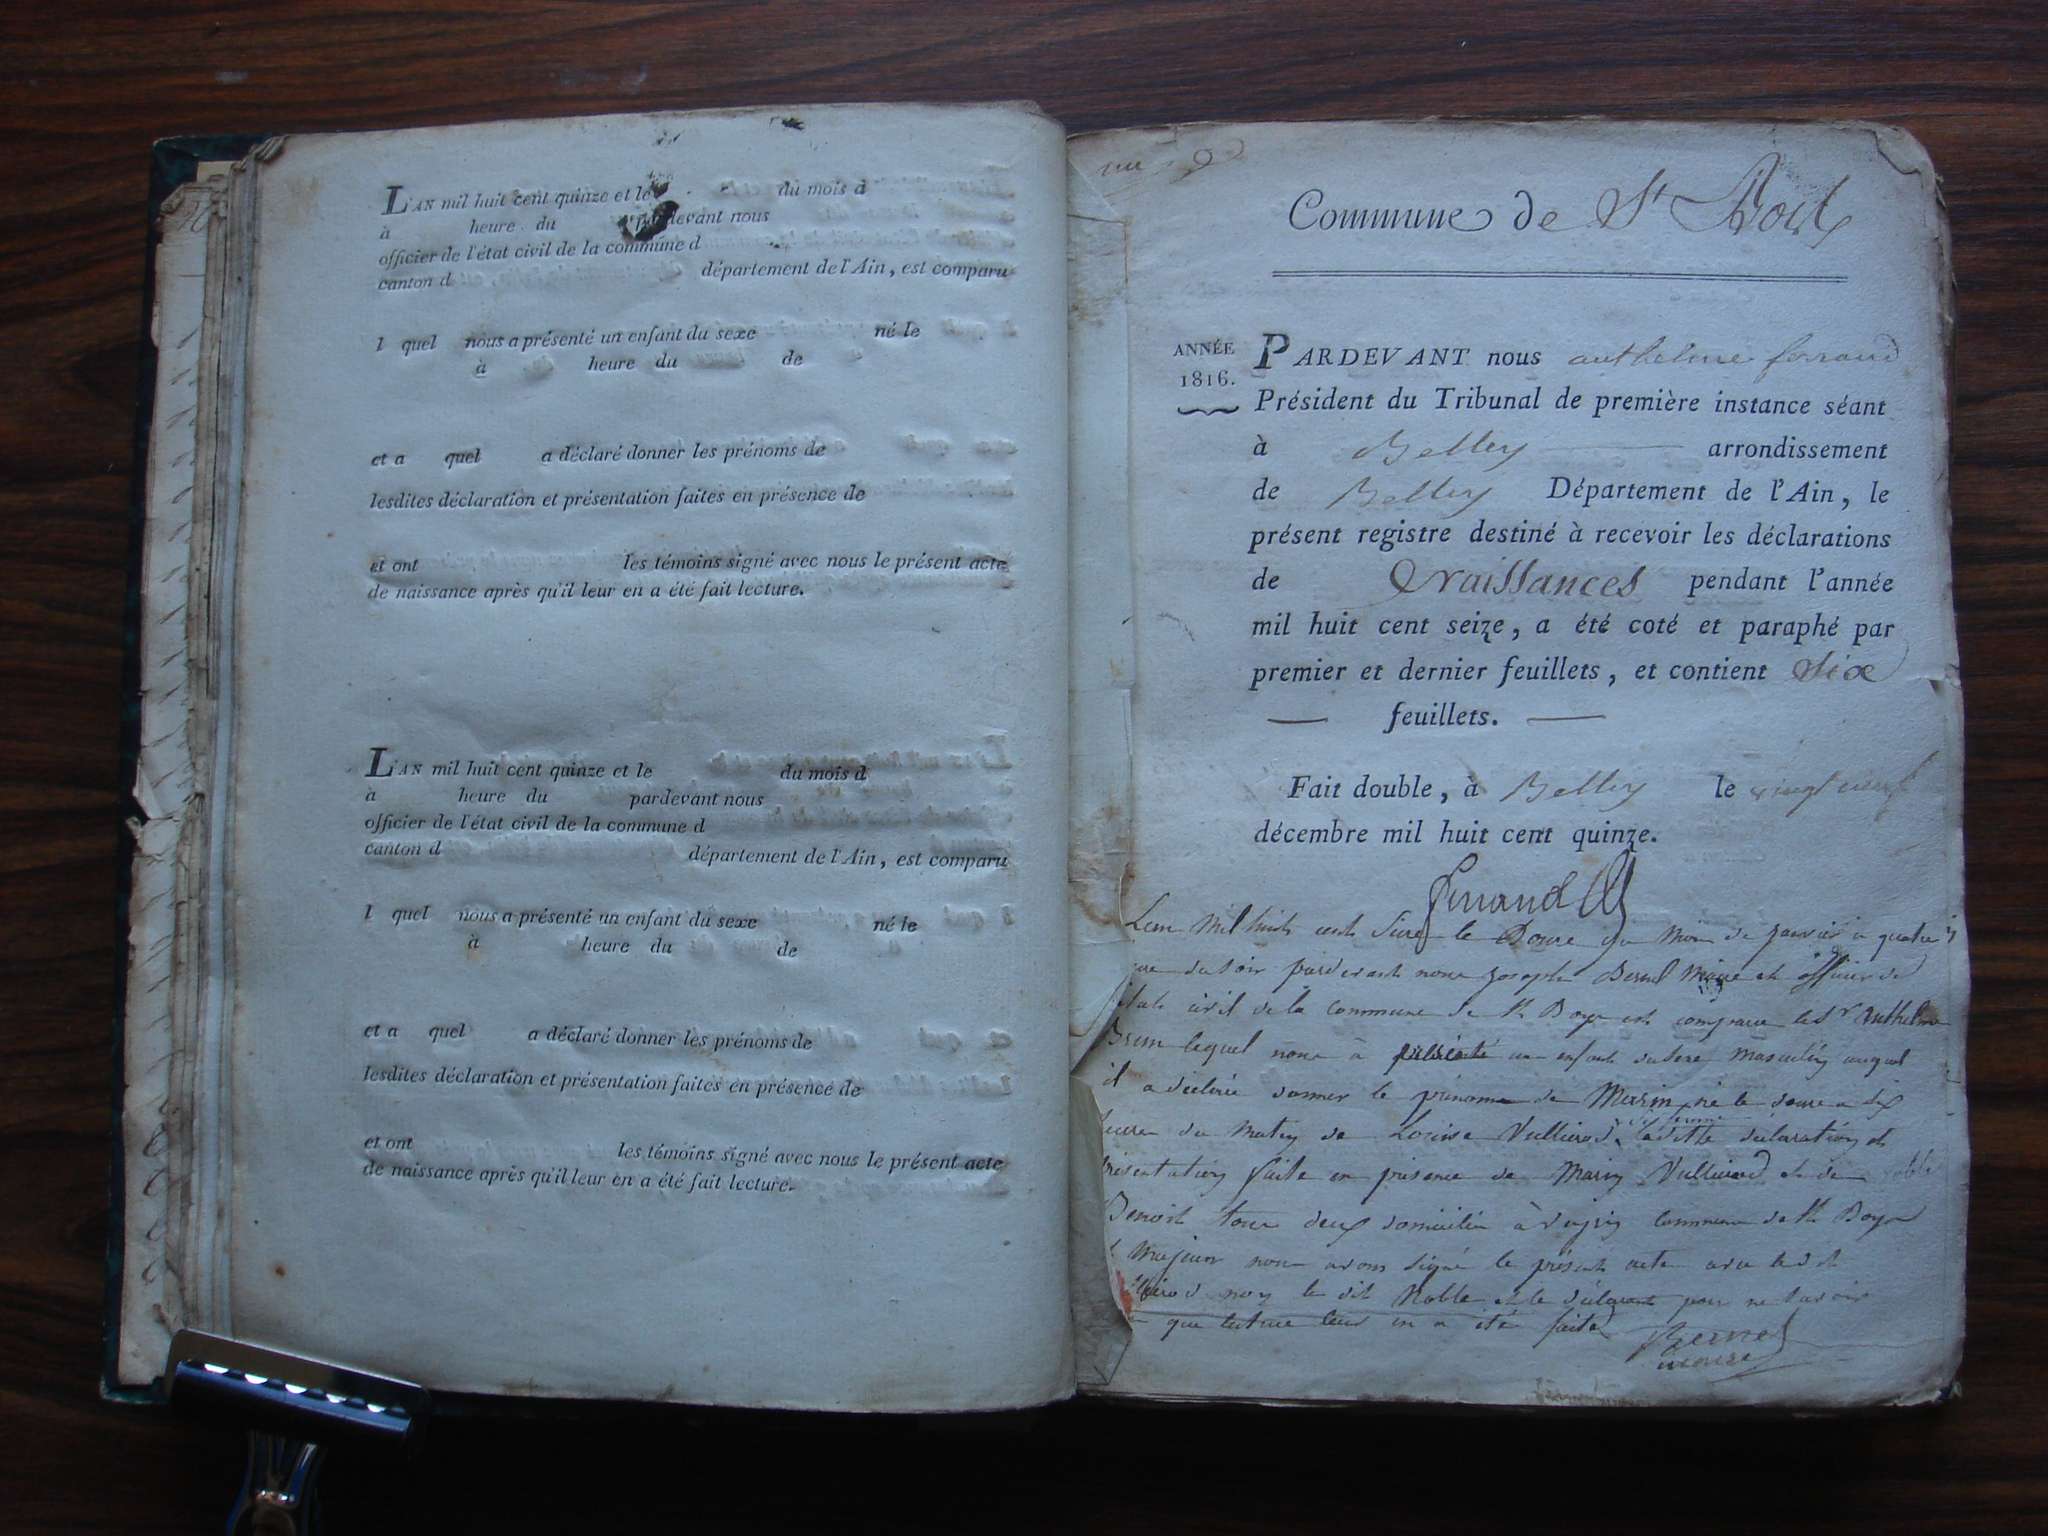 L'AN mil huit cent quinze et le du mois d
à heure du pardevant nous
officier de l'état civil de la commune d
canton d département de l'Ain, est comparu
l quel nous a présenté un enfant du sexe né le
à heure du de
et a quel a déclaré donner les prénoms de
lesdites déclaration et présentation faites en présence de
et ont les témoins signé avec nous le présent acte
de naissance après qu'il leur en a été fait lecture.
L'AN mil huit cent quinze et le du mois d
à heure du pardevant nous
officier de l'état civil de la commune d
canton d département de l'Ain, est comparu
l quel nous a présenté un enfant du sexe né le
à heure du de
et a quel a déclaré donner les prénoms de
lesdites déclaration et présentation faites en présence de
et ont les témoins signé avec nous le présent acte
de naissance après qu'il leur en a été fait lecture.
Commune de St
ANNÉE
1816.
PARDEVANT nous anthelme ferrand
Président du Tribunal de première instance séant
à Belley arrondissement
de Belley Département de l'Ain, le
présent registre destiné à recevoir les déclarations
de Naissances pendant l'année
mil huit cent seize, a été coté et paraphé par
premier et dernier feuillets, et contient six
feuillets.
Fait double, à Belley le vingt neuf
décembre mil huit cent quinze.
ferrand
Lan mil huit cent le Douze du Mois de janvier a quatre
du soir pardevant nous joseph Maire et officier de
civil de la commune de St est comparu le Sr Anthelme
Brun lequel nous à présenté un enfant du sexe masculin auquel
il a déclaré donner le prénom de Marin né le douze a dix
heure du matin de Louise Vullierod ladite déclaration et
présentation faite en présence de Marin Vullierod et de
Benoit tous deux domicilié à commune de St
Majeur nous avons signé le présent acte avec le dit
non le dit Noble et le déclarant pour ne savoir
que lecture leur en a été faite
maire